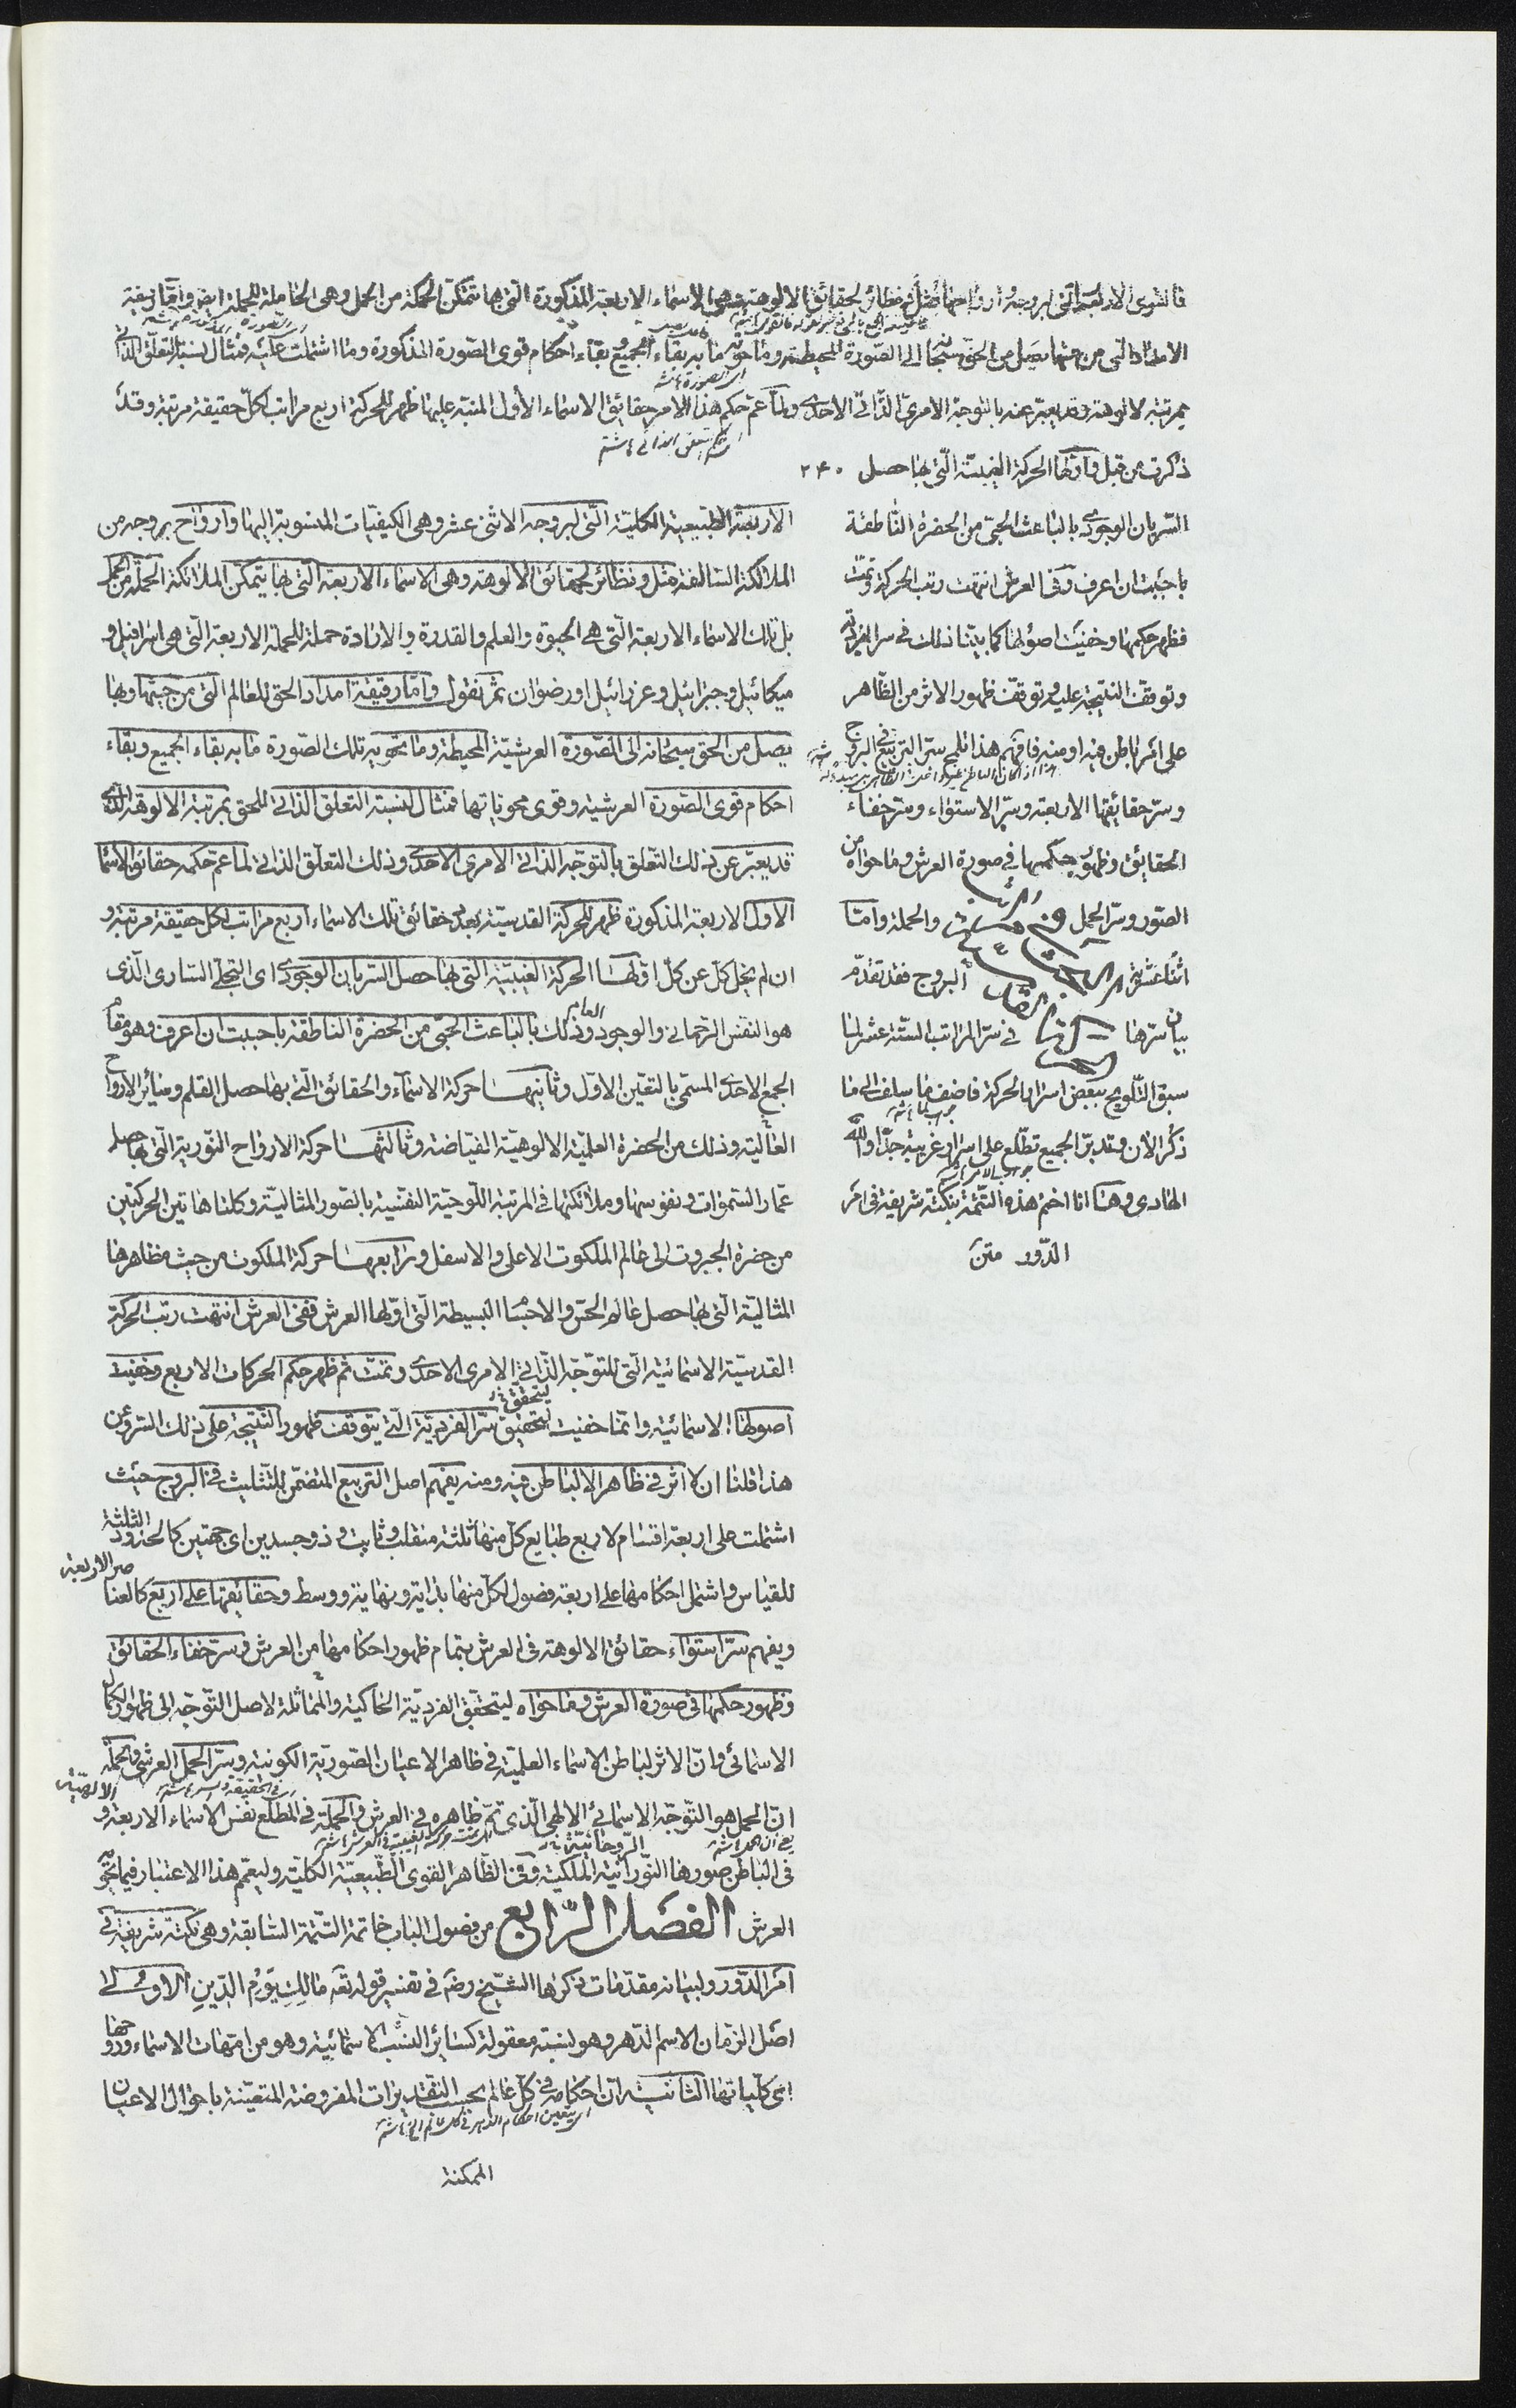 فالقوى الاربعة التى لبروجه وارواحها مثل ونظائر لحقائق الالوهته وهى الاسماء الاربعة المذكورة التى بها تتمكن الحملة من الحمل وهى الحاملة للحملة ايض واما رقيقة
الامداد التى من حيثها يصل من الحق سبحانه الى الصورة المحيطة وما حوته ما به بقاء الجميع وبقاء احكام قوى الصورة المذكورة وما اشتملت عليه فمثال لنسبة التعلق الذاتى
بمرتبة الالوهته وقد يعبر عنه بالتوجه الامرى الذاتى الاحدى ولما عم حكم هذا الامر حقائق الاسماء الأول المنبه عليها ظهر للحركة اربع مراتب لكل حقيقة مرتبة وقد
ذكرت من قبل فاولها الحركة الغيبية التى بها حصل ٢٤٠
السريان الوجودى بالباعث الحبى من الحضرة الناطقة
باحببت ان اعرف وفى العرش انتهت رتب الحركة وتمت
فظهر حكمها وخفيت اصولها كما بينا ذلك فى سر الفردية
وتوقف النتيجة عليه وتوقف ظهور الاثر من الظاهر
على امر باطن فيه او منه فافهم هذا تلمح سر التربيع فى البروج
وسر حقائقها الاربعة وسر الاستواء وسر خفاء
الحقائق وظهور حكمها فى صورة العرش وما حواه من
الصور وسر الحمل والحملة واما
اثنا عشرية البروج فقد تقدم
بيان سرها فى سر المراتب الستة عشر لما
سبق التلويح ببعض اسرار الحركة فاضف ما سلف الى ما
ذكر الان وتدبر الجميع تطلع على اسرار غريبة جدا والله
الهادى وها انا اختم هذه التتمة بنكتة شريفة فى امر
الدور متن
الاربعة الطبيعية الكلية التى لبروجه الاثنى عشر وهى الكيفيات المنسوبة اليها وارواح بروجه من
الملائكة السالفة مثل ونظائر لحقائق الالوهته وهى الاسماء الاربعة التى بها يتمكن الملائكة الحملة من الحمل
بل تلك الاسماء الاربعة التى هى الحيوة والعلم والقدرة والارادة حملة للحملة الاربعة التى هى اسرافيل و
ميكائيل وجبرائيل وعزرائيل او رضوان ثم نقول واما رقيقة امداد الحق للعالم التى من حيثها وبها
يصل من الحق سبحانه الى الصورة العرشية المحيطة وما تحويه تلك الصورة ما به بقاء الجميع وبقاء
احكام قوى الصورة العرشية وقوى محوياتها فمثال لنسبة التعلق الذاتى للحق بمرتبة الالوهته الذى
قد يعبر عن ذلك التعلق بالتوجه الذاتى الامرى الاحدى وذلك التعلق الذاتى لما عم حكمه حقائق الاسما
الاول الاربعة المذكورة ظهر للحركة القدسية بعدد حقائق تلك الاسماء اربع مراتب لكل حقيقة مرتبة و
ان لم يخل كل عن كل اولها الحركة الغيبية التى بها حصل السريان الوجودى اى التجلى السارى الذى
هو النفس الرحمانى والوجود العام وذلك بالباعث الحبى من الحضرة الناطقة باحببت ان اعرف وهو مقام
الجمع الاحدى المسمى بالتعين الاول وثانيها حركة الاسماء والحقائق التى بها حصل القلم وسائر الارواح
العالية وذلك من الحضرة العلمية الالوهية الفياضة وثالثها حركة الارواح النورية التى بها حصل
عمار السموات ونفوسها وملائكتها فى المرتبة اللوحية النفسية بالصور المثالية وكلتا هاتين الحركتين
من حضرة الجبروت الى عالم الملكوت الاعلى والاسفل ورابعها حركة الملكوت من حيث مظاهرها
المثالية التى بها حصل عالم الحس والاجسام البسيطة التى اولها العرش ففى العرش انتهت رتب الحركة
القدسية الاسمائية التى للتوجه الذاتى الامرى الاحدى وتمت ثم ظهر حكم الحركات الاربع وخفيت
اصولها الاسمائية وانما خفيت لتحقيق سر الفردية التى يتوقف ظهور النتيجة على ذلك السر وعن
هذا قلنا ان لا اثر فى ظاهر الا لباطن فيه ومنه يفهم اصل التربيع المتضمن للتثليث فى البروج حيث
اشتملت على اربعة اقسام لاربع طبايع كل منها ثلثة منقلب وثابت وذو جسدين اى جهتين كالحدود الثلثة
للقياس واشتمل احكامها على اربعة فصول لكل منها بداية ونهاية ووسط وحقايقها على اربع كالعناصر الاربعة
ويفهم سر استواء حقائق الالوهته فى العرش بتمام ظهور احكامها من العرش وسر خفاء الحقائق
وظهور حكمها فى صورة العرش وما حواه ليتحقق الفردية الحاكية والمماثلة لاصل التوجه الى ظهور الكمال
الاسمائى وان الاثر لباطن الاسماء العلمية فى ظاهر الاعيان الصورية الكونية وسر الحمل العرشى والحملة
ان الحمل هو التوجه الاسمائى الالهى الذى تم ظاهره فى العرش والحملة فى المطلع نفس الاسماء الاربعة الالهية و
فى الباطن صورها النورانية الملكية الروحانية وفى الظاهر القوى الطبيعية الكلية وليعم هذا الاعتبار فيما تحويه
العرش الفصل الرابع من فصول الباب خاتمة التتمة السابقة وهى نكتة شريفة فى
امر الدور ولبيانه مقدمات ذكرها الشيخ رضه فى تفسير قوله تعه مالك يوم الدين الاولى
اصل الزمان الاسم الدهر وهو نسبة معقولة كسائر النسب الاسمائية وهو من امهات الاسماء ودوحها
اى كلياتها الثانية ان احكامه فى كل عالم بحسب التقديرات المفروضة المتعينة باحوال الاعيان
اى يتعين احكام الدهر فى كل عالم الخ
الممكنة